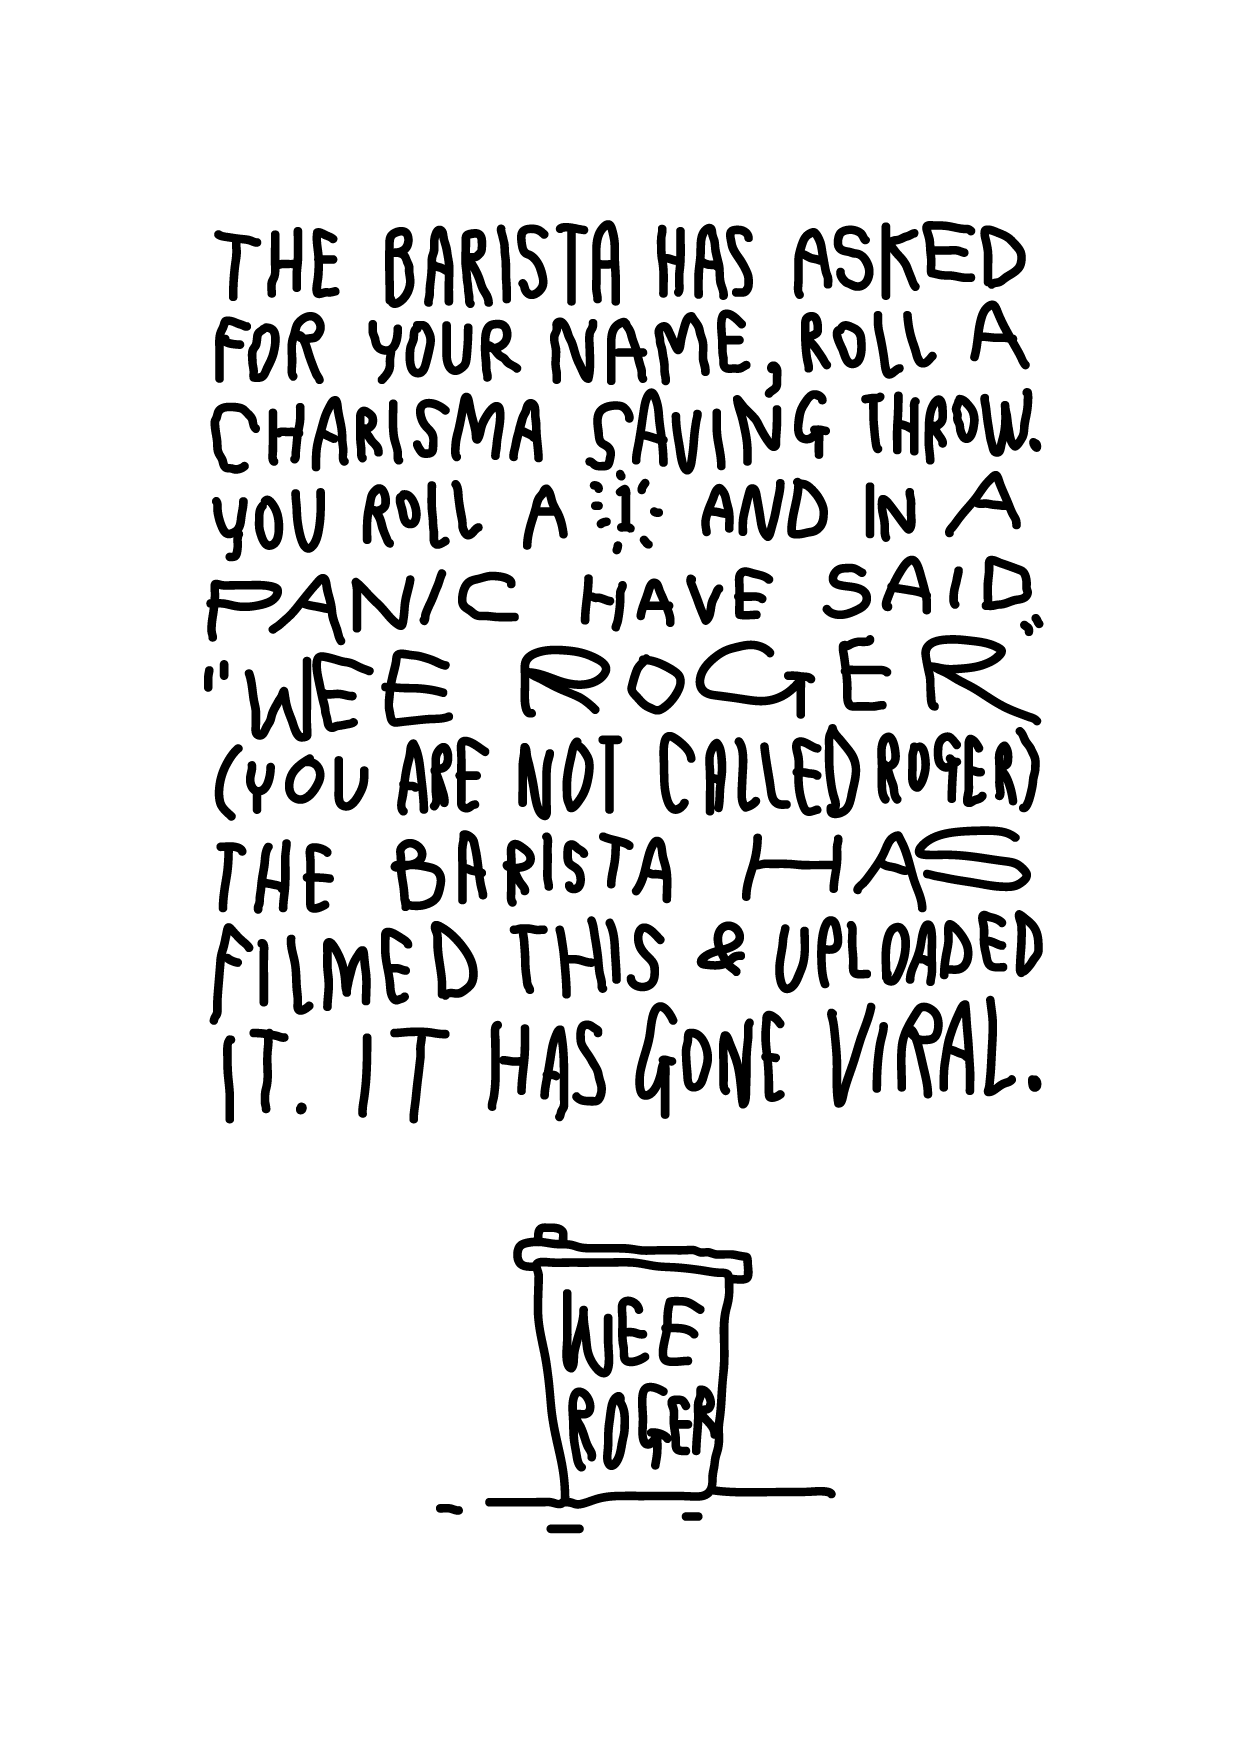 THE BARISTA HAS ASKED
FOR YOUR NAME, ROLL A
CHARISMA SAVING THROW.
YOU ROLL A 1 AND IN A
PANIC HAVE SAID
"WEE ROGER"
(YOU ARE NOT CALLED ROGER)
THE BARISTA HAS
FILMED THIS & UPLOADED
IT. IT HAS GONE VIRAL.
WEE
ROGER